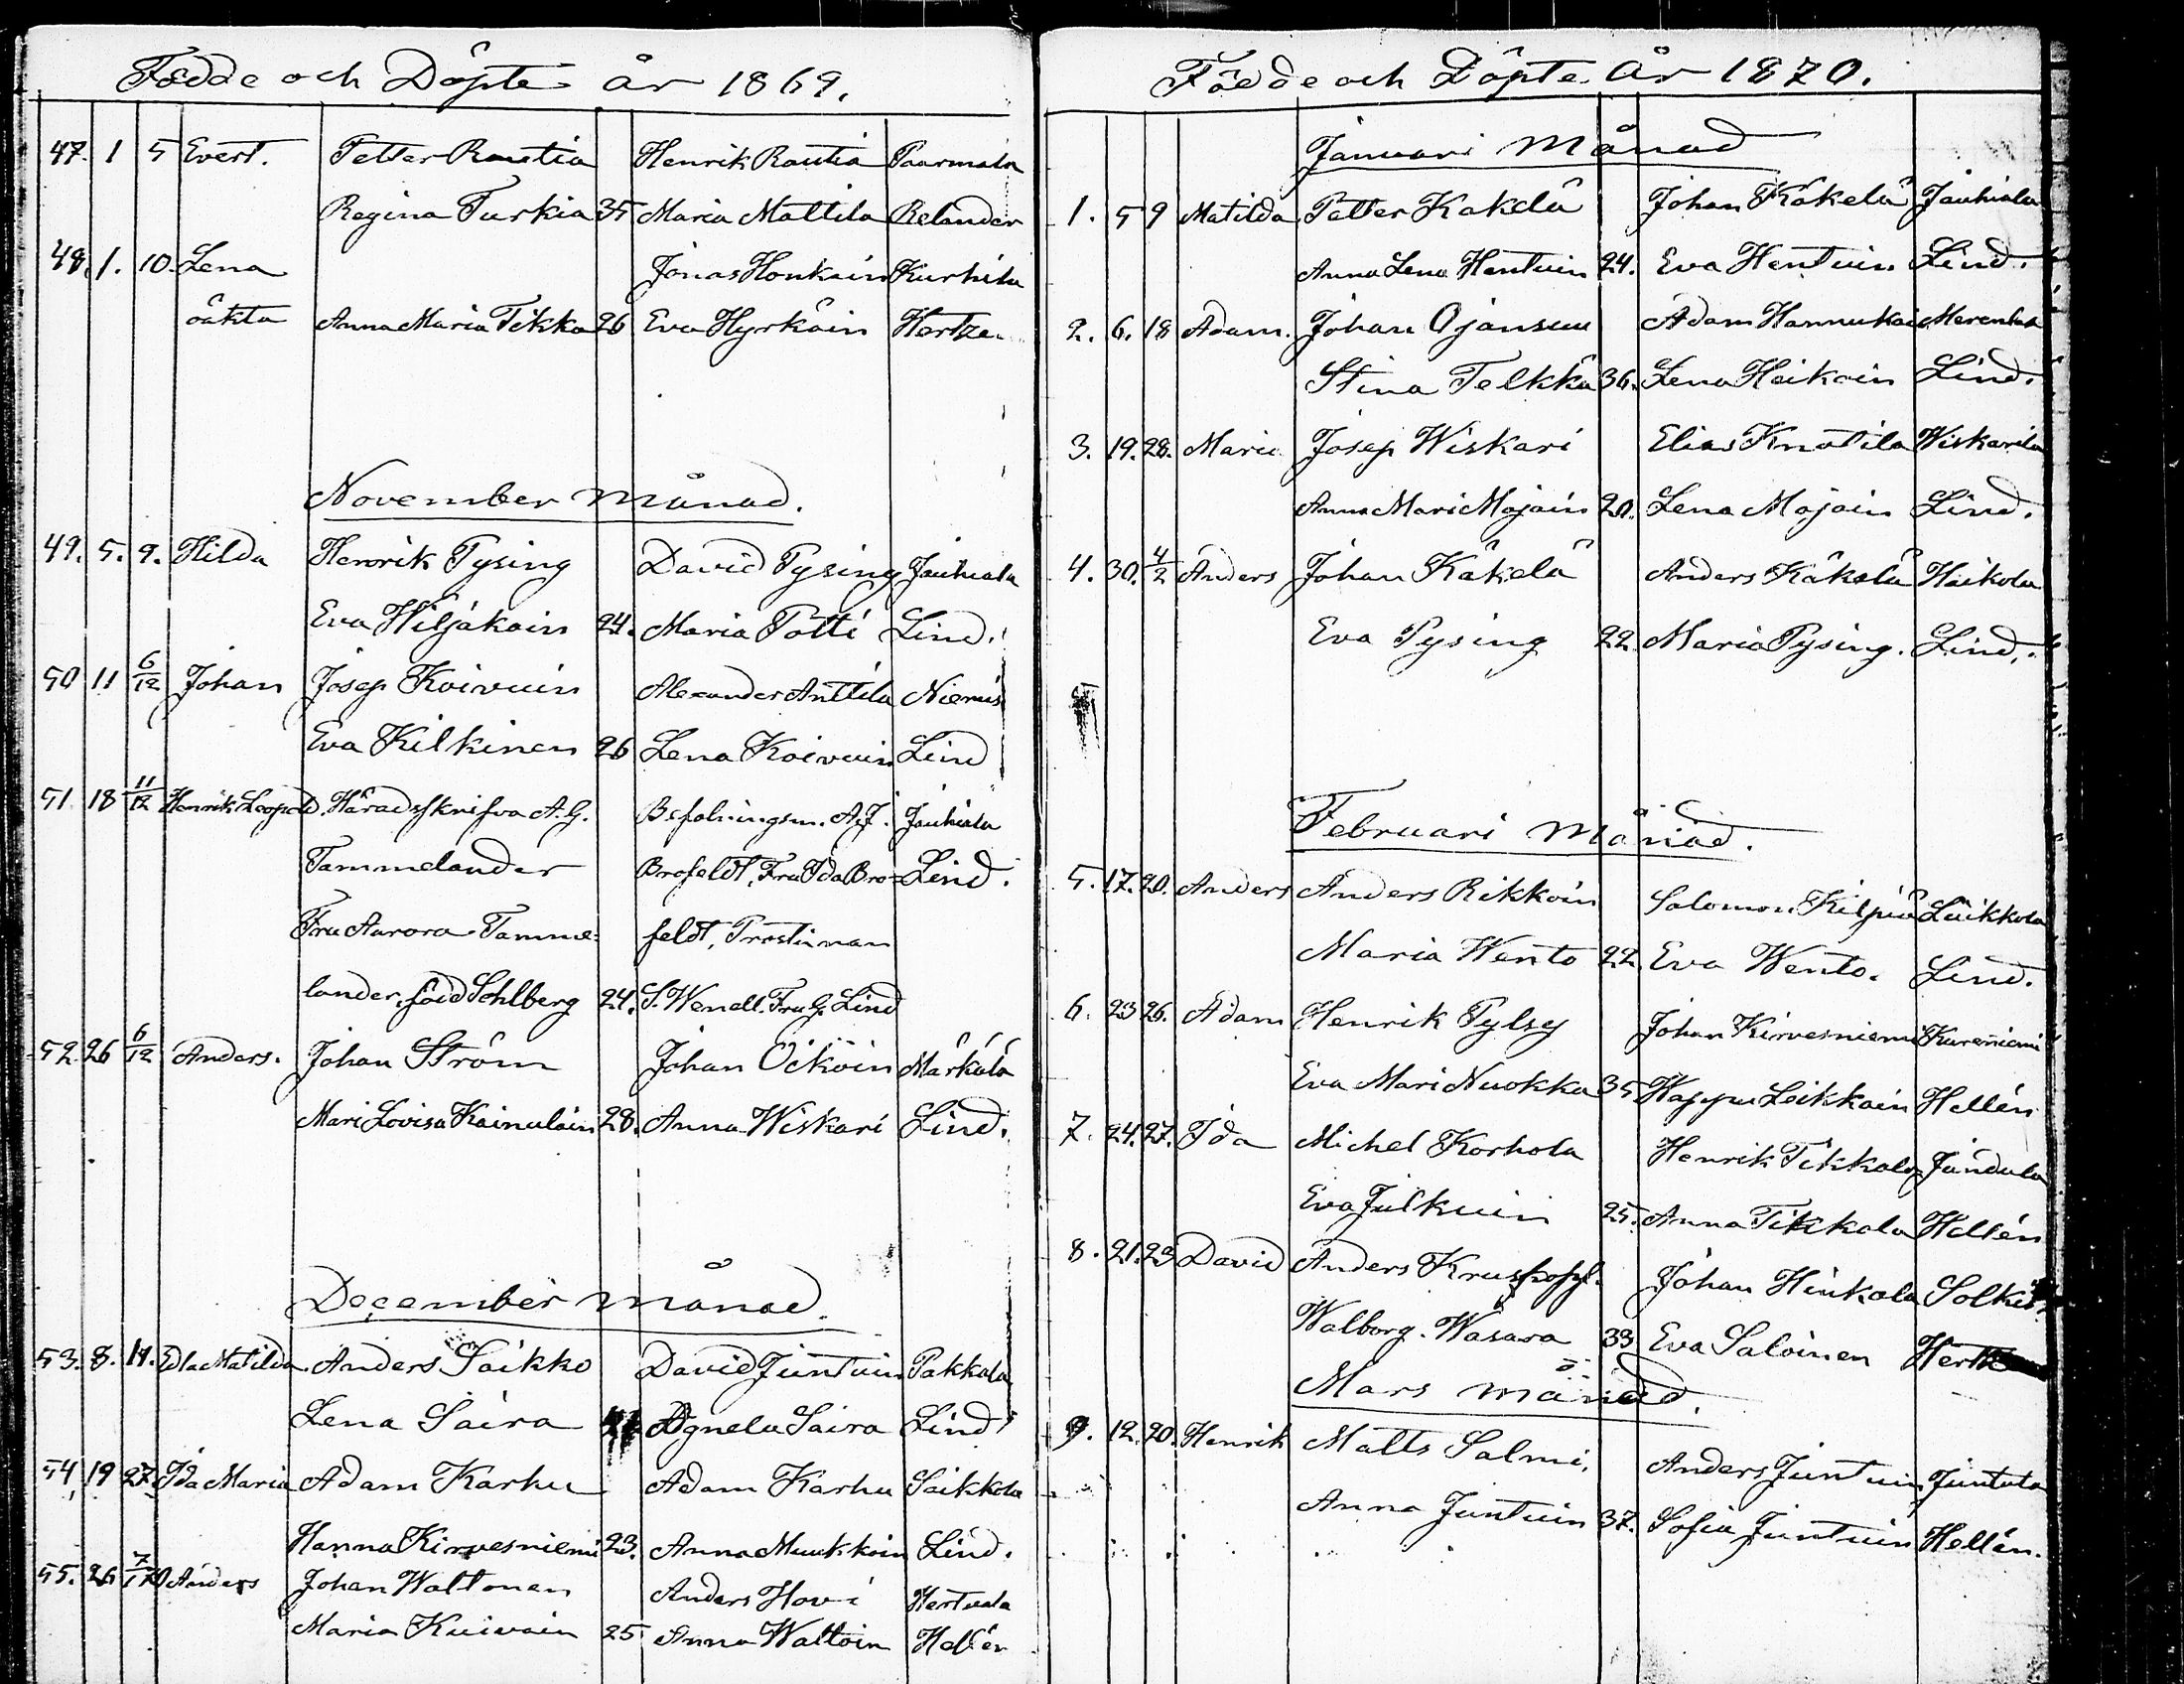 Födde och Döpte år 1869.
47. 1 5 Evert. Petter Rautia Henrik Rautia Paarmala
Regina Turkia 35 Maria Mattila Relander
48. 1. 10. Lena Jonas Honkain Kurhila
oäkta Anna Maria Tikka 26 Eva Hyrkäin Hertze
November månad.
49. 5. 9. Hilda Henrik Pysing David Pysing Jauhiala
Eva Hiljakain 24. Maria Potti Lind.
50 11 6/12 Johan Josep Koivuin Alexander Anttila Niemis
Eva Kilkinen 26 Lena Koivuin Lind
51 18 11/12 Henrik Leopold Häradsskrifva A. G. Befalningsm. A. J. Jauhiala
Tammelander Brofeldt, Fru Ida Bro= Lind.
Fru Aurora Tamme= feldt, Prostinnan
lander, född Sohlberg 24. S. Wendell. Fru G. Lind
52. 26 6/12 Anders. Johan Ström Johan Öiköin Märkälä
Mari Lovisa Kainulain 28. Anna Wiskari Lind.
December månad.
53. 8. 11. Edla Matilda Anders Saikko David Juntuin Pakkala
Lena Saira Agneta Saira Lind
54, 19 27. Ida Maria Adam Karhu Adam Karhu Saikkola
Hanna Kirvesniemi 23. Anna Muukkoin Lind.
55. 26 7/1 70 Anders Johan Waltonen Anders Hovi Hertuala
Maria Kuivain 25 Anna Waltoin Hellén
Födde och Döpte År 1870.
Januari Månad
1. 5 9 Matilda Petter Käkelä Johan Käkelä Jauhiala
Anna Lena Hentuin 24. Eva Hentuin Lind.
2. 6. 18 Adam. Johan Ojansuu Adam Hannukai
Stina Telkkä 36. Lena Heikain Lind.
3. 19. 28. Maria Josep Wiskari Elias Knutila Wiskarila
Anna Mari Majain 20. Lena Majain Lind.
4. 30. 4/2 Anders Johan Käkelä Anders Käkelä Haikola
Eva Pysing 22. Maria Pysing. Lind.
Februari månad.
5. 17. 20. Anders Anders Rikkoin Salomon Kilpiä Laikkola
Maria Wento 22. Eva Wento. Lind.
6. 23 26. Adam Henrik Pylsy Johan Kirvesniemi Kureniemi
Eva Mari Nuokka 35 Wappu Leikkain Hellén
7. 24. 27. Ida Michel Korhola Henrik Tikkala Jündula
Eva Julkuin 25. Anna Tikkala Hellén
8. 21. 23 David Anders Kruskopf. Johan Hinkola Solkis
Walborg. Wasara 33 Eva Saloinen
Mars månad.
9. 12. 20. Henrik Matts Salmi. Anders Juntuin Juntula
Anna Juntuin 37. Sofia Juntuin Hellén.